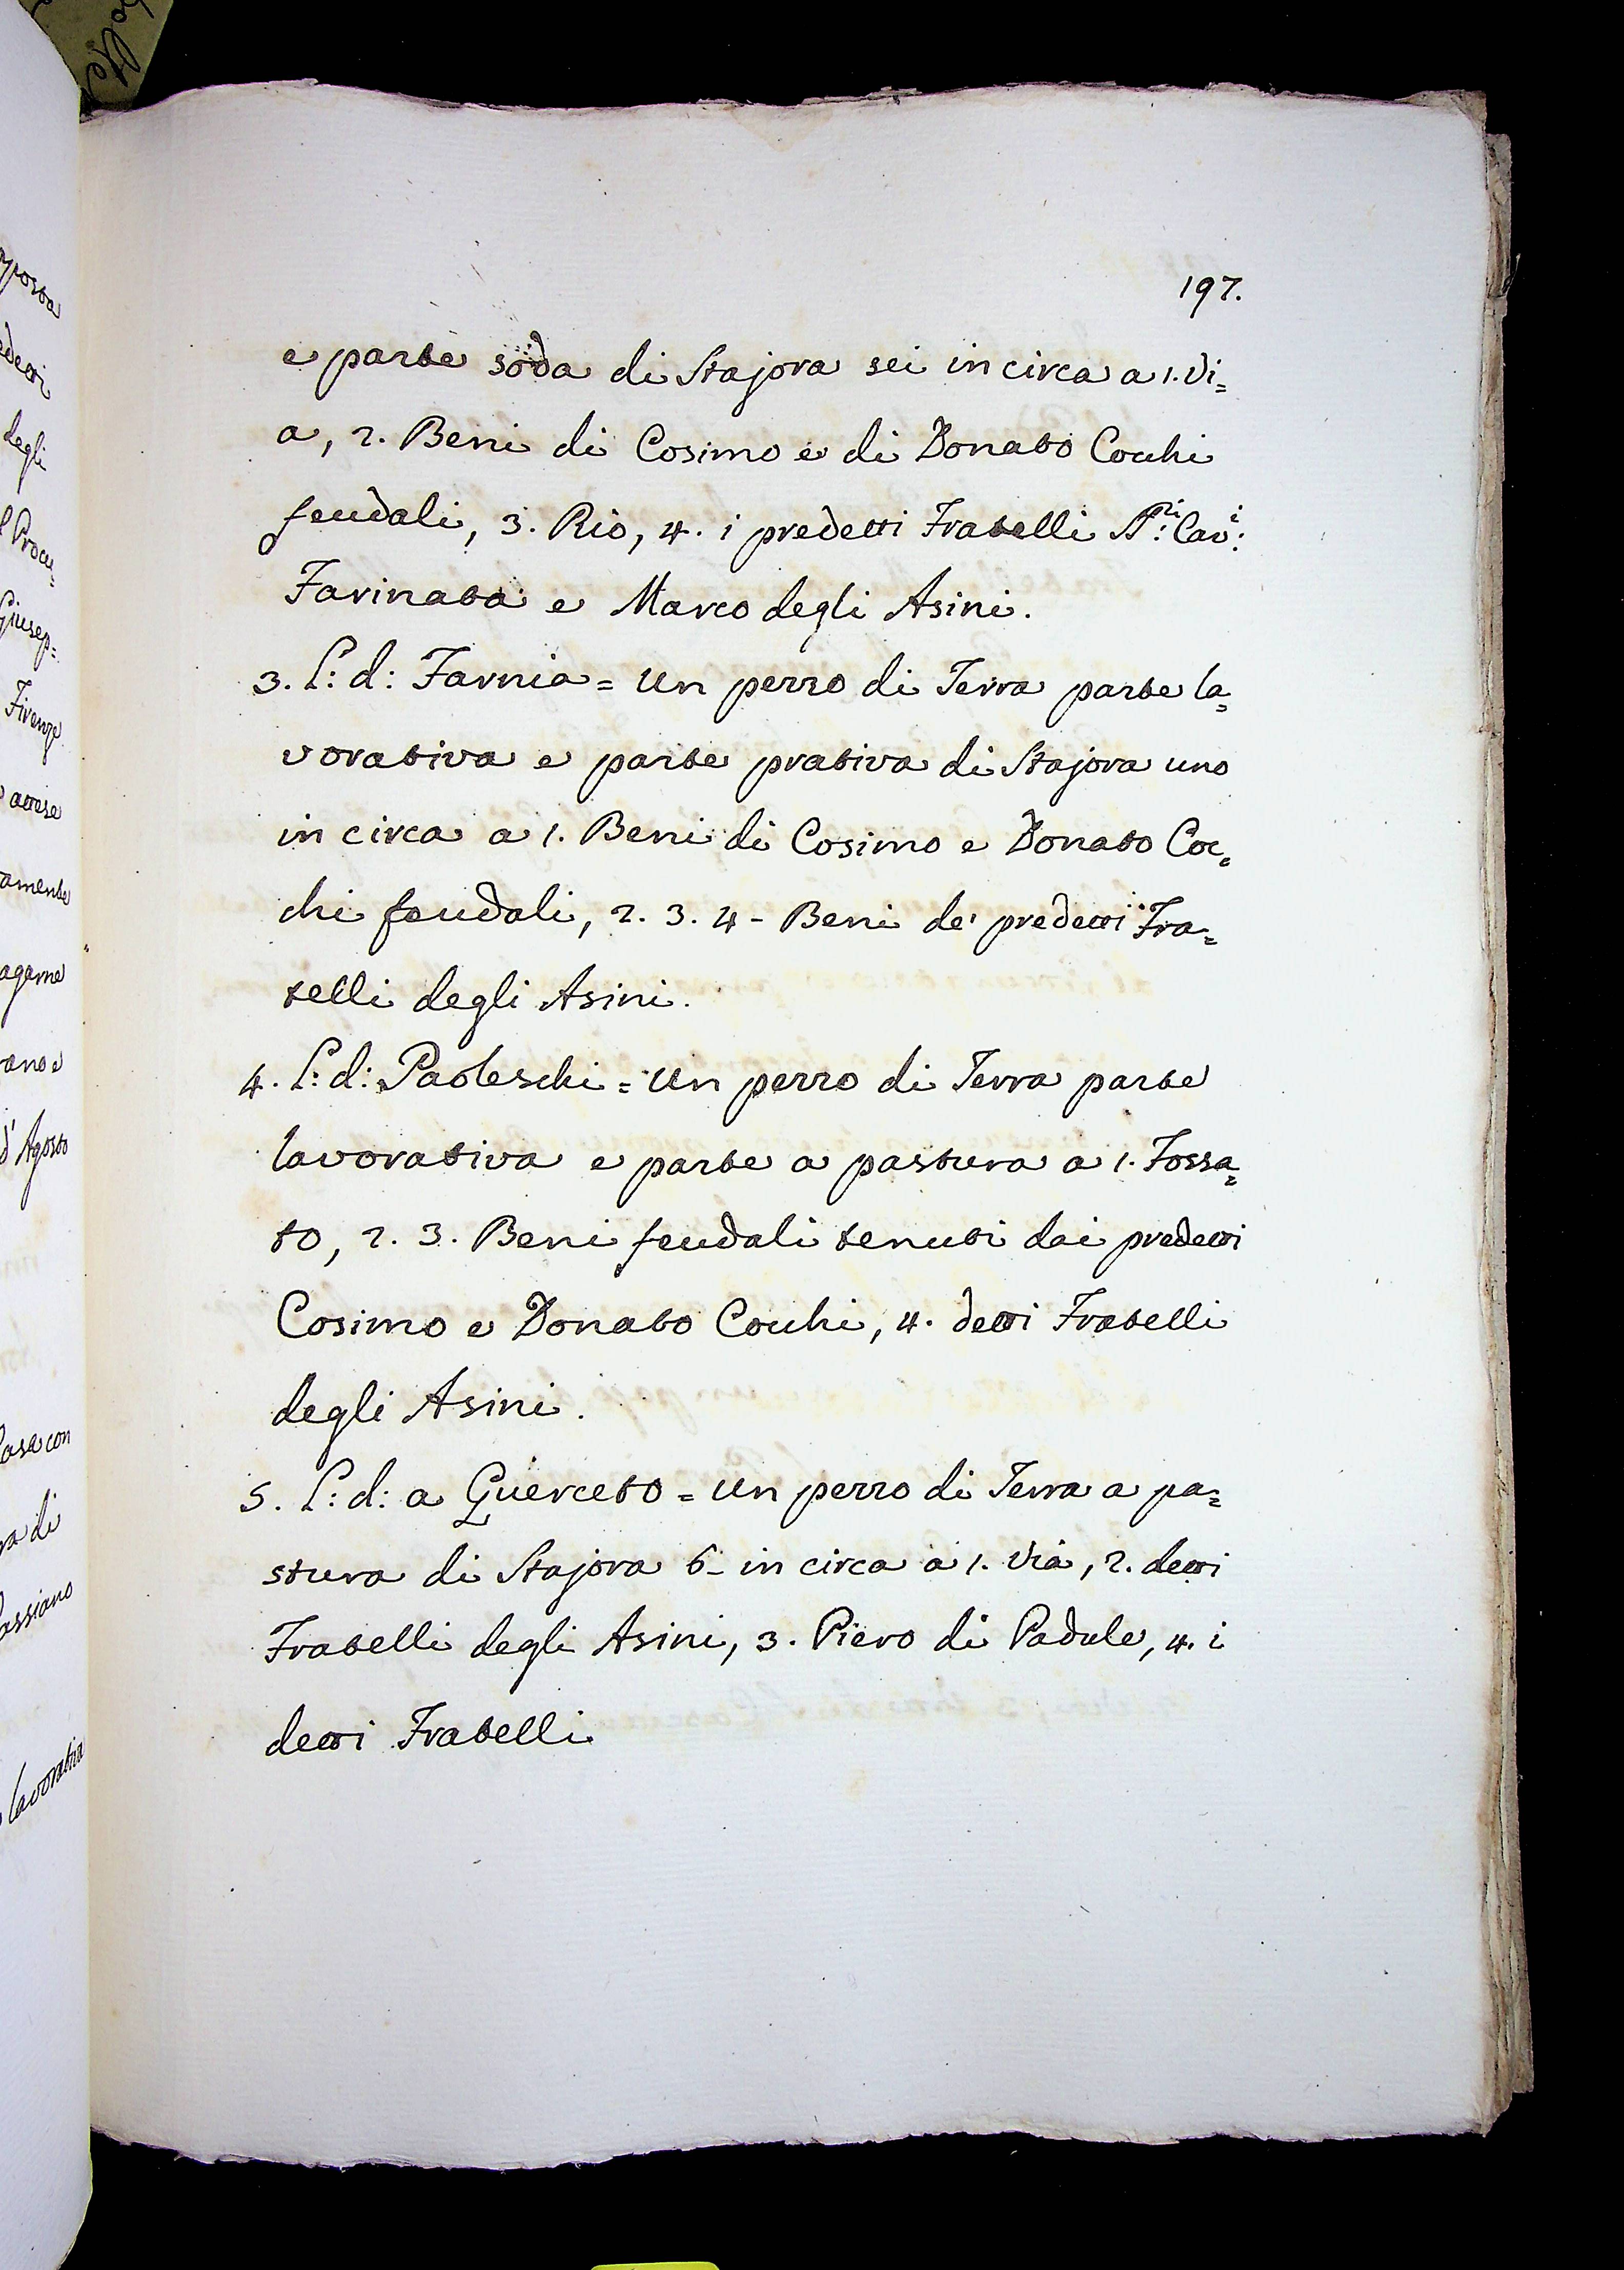 197.
e parte soda di Stajora sei in circa a 1. Vi=
a, 2. Beni di Cosimo e di Donato Cocchi
feudali, 3. Rio, 4. i predetti Fratelli Sri: Cavi:
Farinata e Marco degli Asini.
3. L: d: Farnia = Un pezzo di Terra parte la=
vorativa e parte prativa di Stajora uno
in circa a 1. Beni di Cosimo e Donato Coc=
chi feudali, 2. 3. 4 - Beni de' predetti Fra=
telli degli Asini.
4. L: d: Paoleschi = Un pezzo di Terra parte
lavorativa e parte a pastura a 1. Fossa=
to, 2. 3. Beni feudali tenuti dai predetti
Cosimo e Donato Cocchi, 4. detti Fratelli
degli Asini.
5. L: d: a Querceto = Un pezzo di Terra a pa=
stura di Stajora 6 - in circa a 1. Via, 2. detti
Fratelli degli Asini, 3. Piero di Padule, 4. i
detti Fratelli